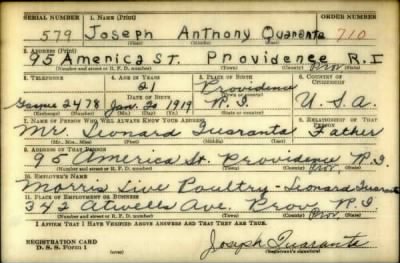 SERIAL NUMBER 1. NAME (Print) ORDER NUMBER
579 Joseph Anthony Quaranta 710
(First) (Middle) (Last)
2. ADDRESS (Print)
95 America St. Providence R.I
(Number and street or R. F. D. number) (Town) (County) (State)
3. TELEPHONE 4. AGE IN YEARS 5. PLACE OF BIRTH 6. COUNTRY OF CITIZENSHIP
21 Providence
DATE OF BIRTH (Town or county)
Gaspee 2478 Jan. 20 1919 R.I. U.S.A.
(Exchange) (Number) (Mo.) (Day) (Yr.) (State or country)
7. NAME OF PERSON WHO WILL ALWAYS KNOW YOUR ADDRESS 8. RELATIONSHIP OF THAT PERSON
Mr. Leonard Quaranta Father
(Mr., Mrs., Miss) (First) (Middle) (Last)
9. ADDRESS OF THAT PERSON
95 America St. Providence R.I.
(Number and street or R. F. D. number) (Town) (County) (State)
10. EMPLOYER'S NAME
Morris Live Poultry - Leonard Quaranta
11. PLACE OF EMPLOYMENT OR BUSINESS
342 Atwells Ave. Prov. Prov R.I.
(Number and street or R. F. D. number) (Town) (County) (State)
I AFFIRM THAT I HAVE VERIFIED ABOVE ANSWERS AND THAT THEY ARE TRUE.
REGISTRATION CARD
D. S. S. Form 1 Joseph Quaranta
(Registrant's signature)